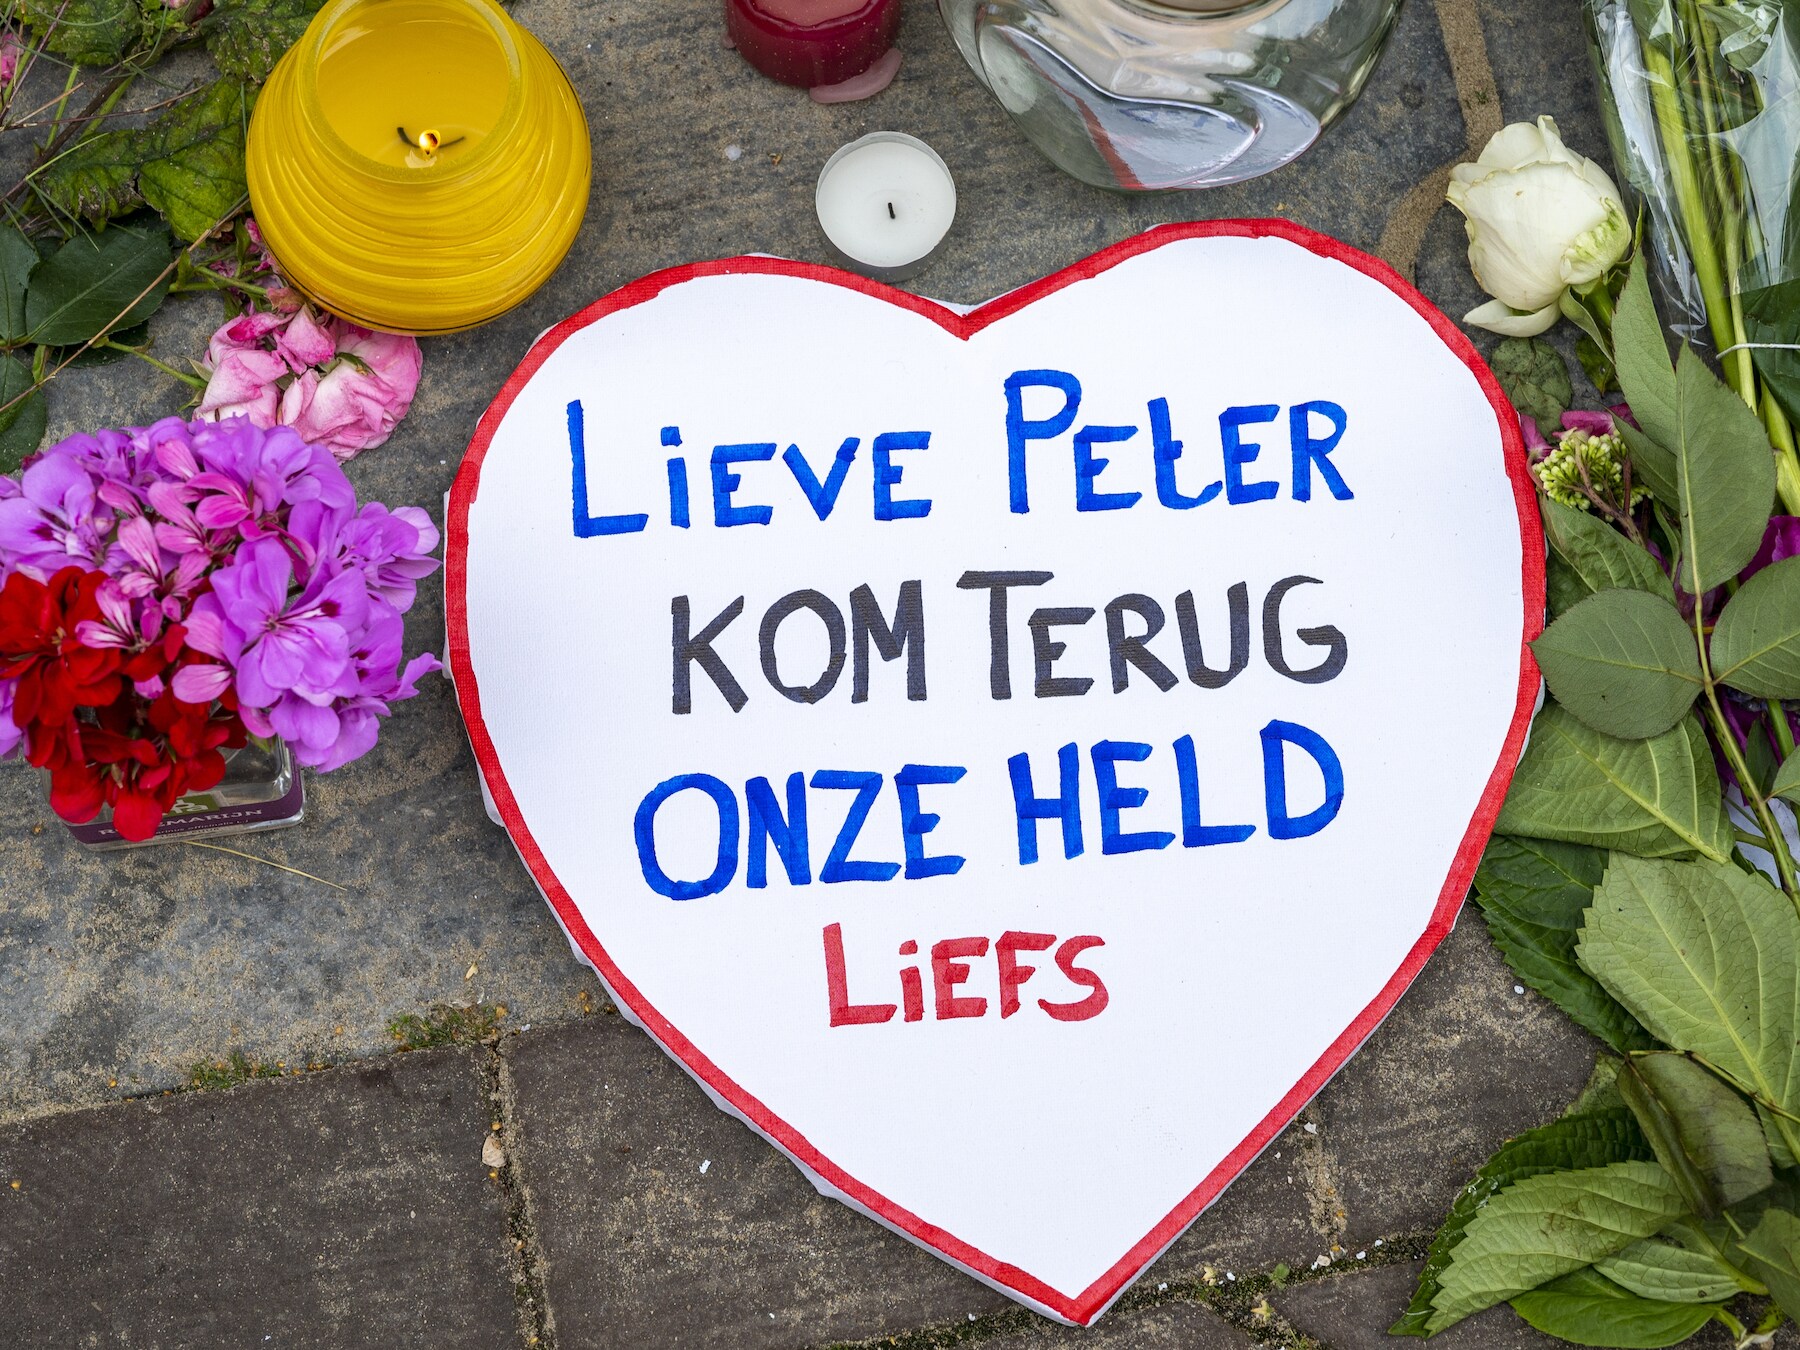 LiEVE PETER
KOM TERUG
ONZE HELD
LiEFS